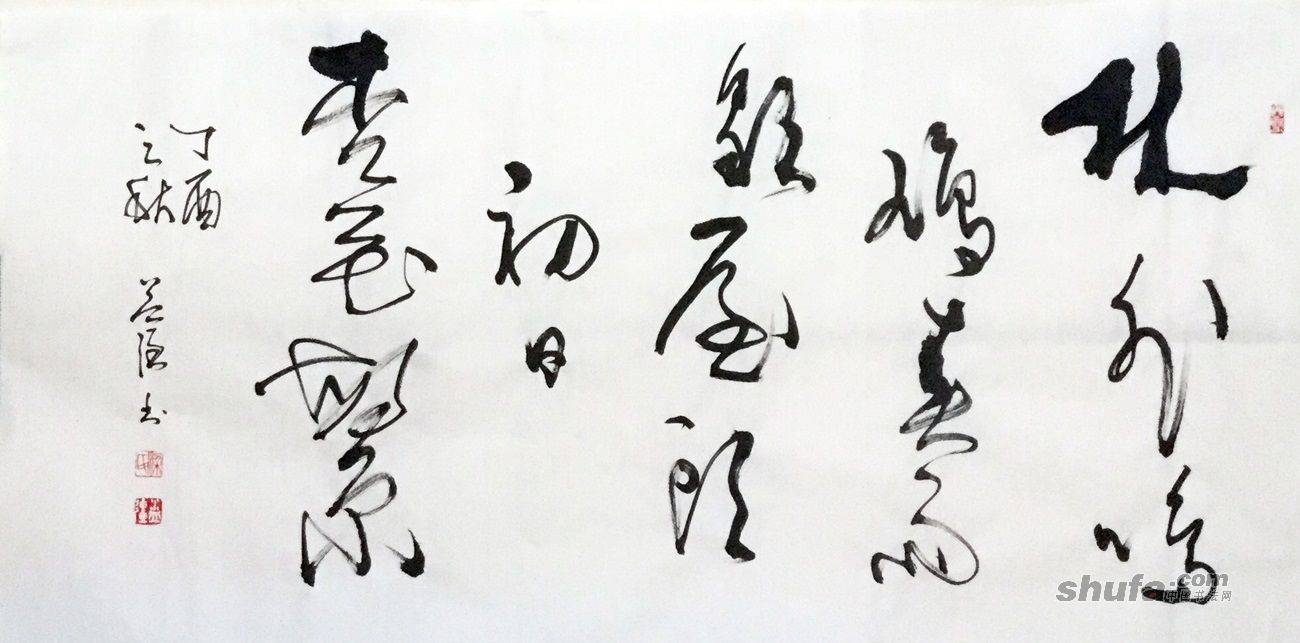 林外鳴
鳩春雨
歇屋頭
初日
杏花繁
丁酉
之秋 书
shufa.com
中国书法网